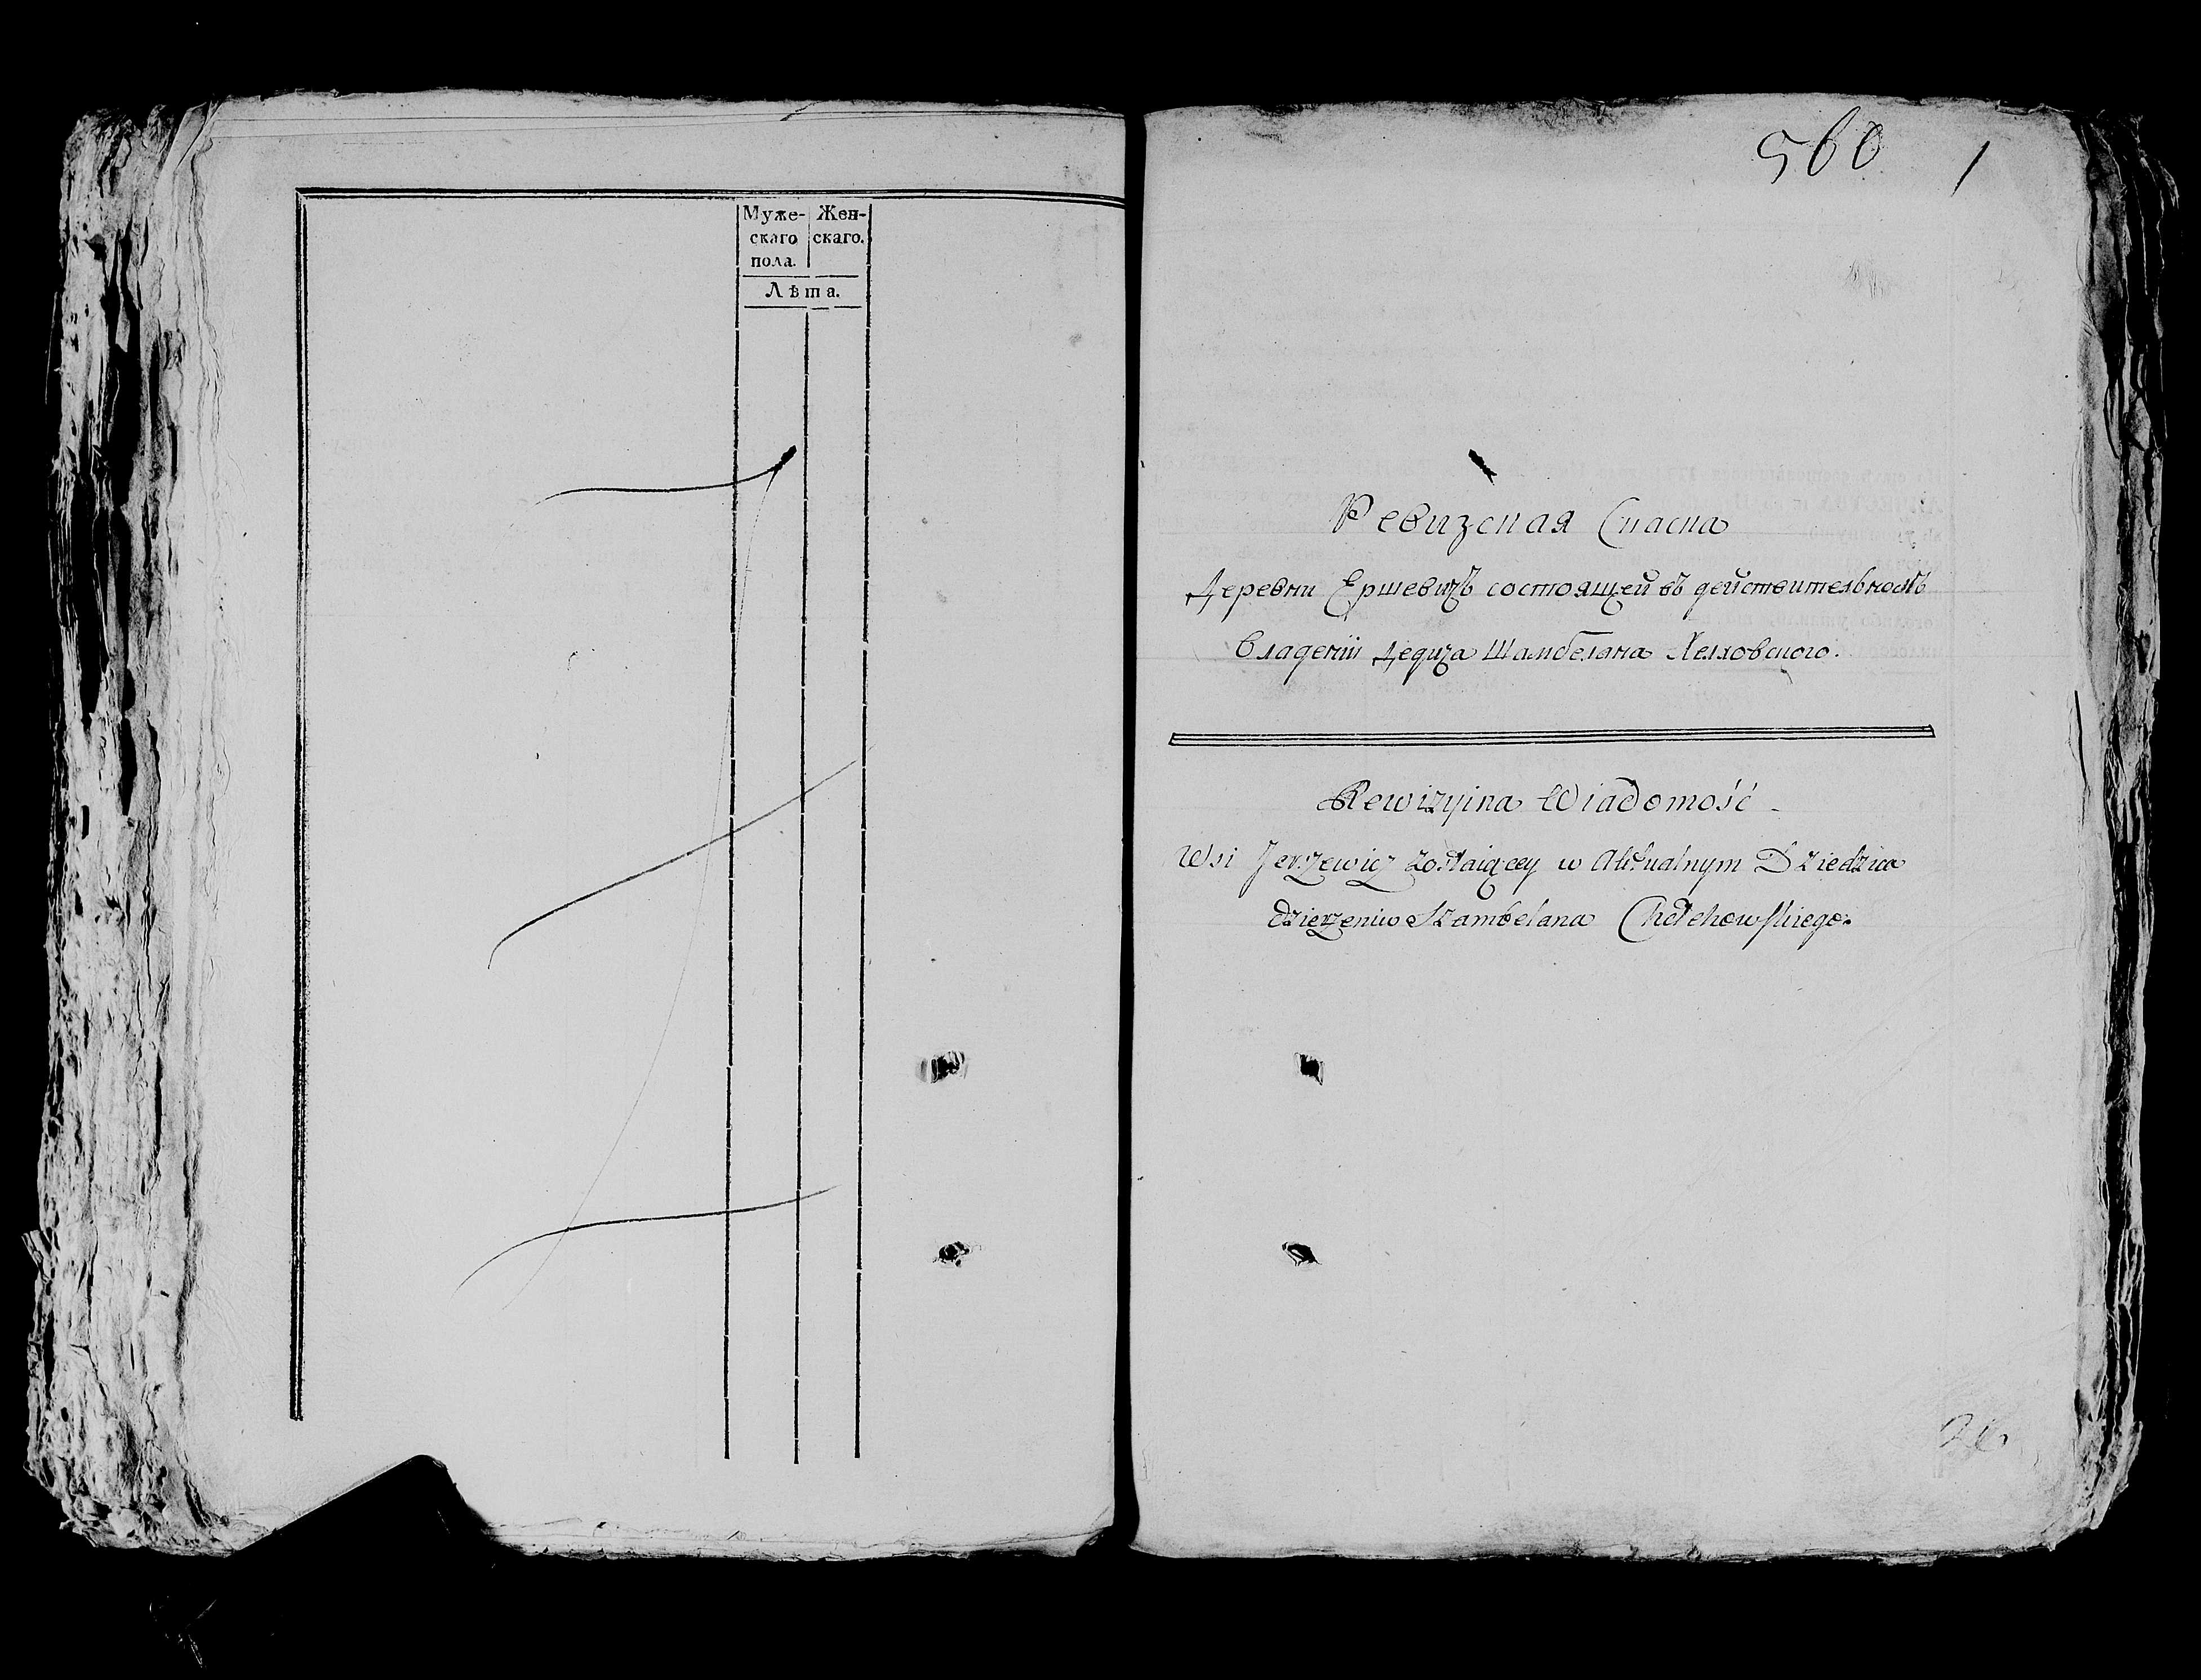 Муже-
скаго
пола.
Жен-
скаго.
Лѣта.
560 1
Ревизская Скаска
Деревни Ершевичъ состоящей въ действительномъ
Владении Дедича Шамбелана Хелховского.
Rewizyina Wiadomość
Wsi Jerzewicz zostaiącey w Aktualnym Dziedzica
dzierzeniu Szambelana Chełchowskiego.